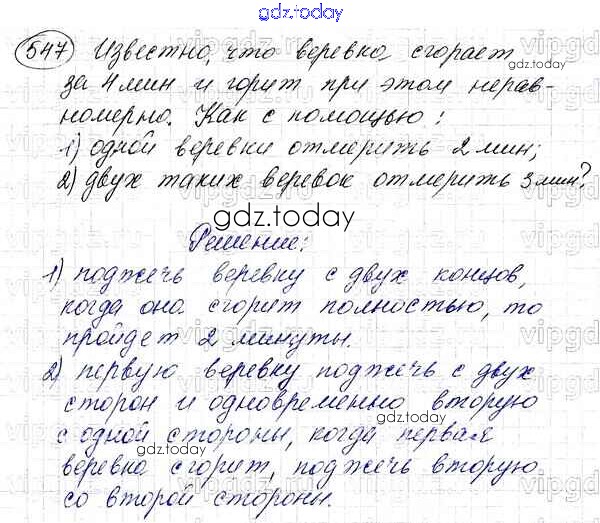 gdz.today
547 Известно, что веревка сгорает
за 4 мин и горит при этом нерав-
номерно. Как с помощью:
1) одной веревки отмерить 2 мин;
2) двух таких веревок отмерить 3 мин?
gdz.today
Решение:
1) поджечь веревку с двух концов,
когда она сгорит полностью, то
пройдет 2 минуты.
2) первую веревку поджечь с двух
сторон и одновременно вторую
с одной стороны, когда первая
веревка сгорит, поджечь вторую
со второй стороны.